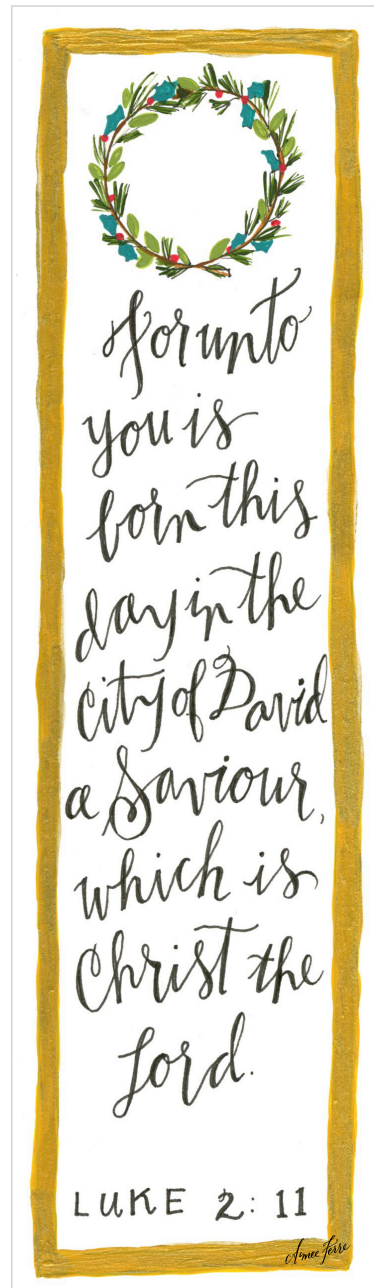 For unto
you is
born this
day in the
city of David
a Saviour,
which is
Christ the
Lord.
LUKE 2:11
Aimee Ferre